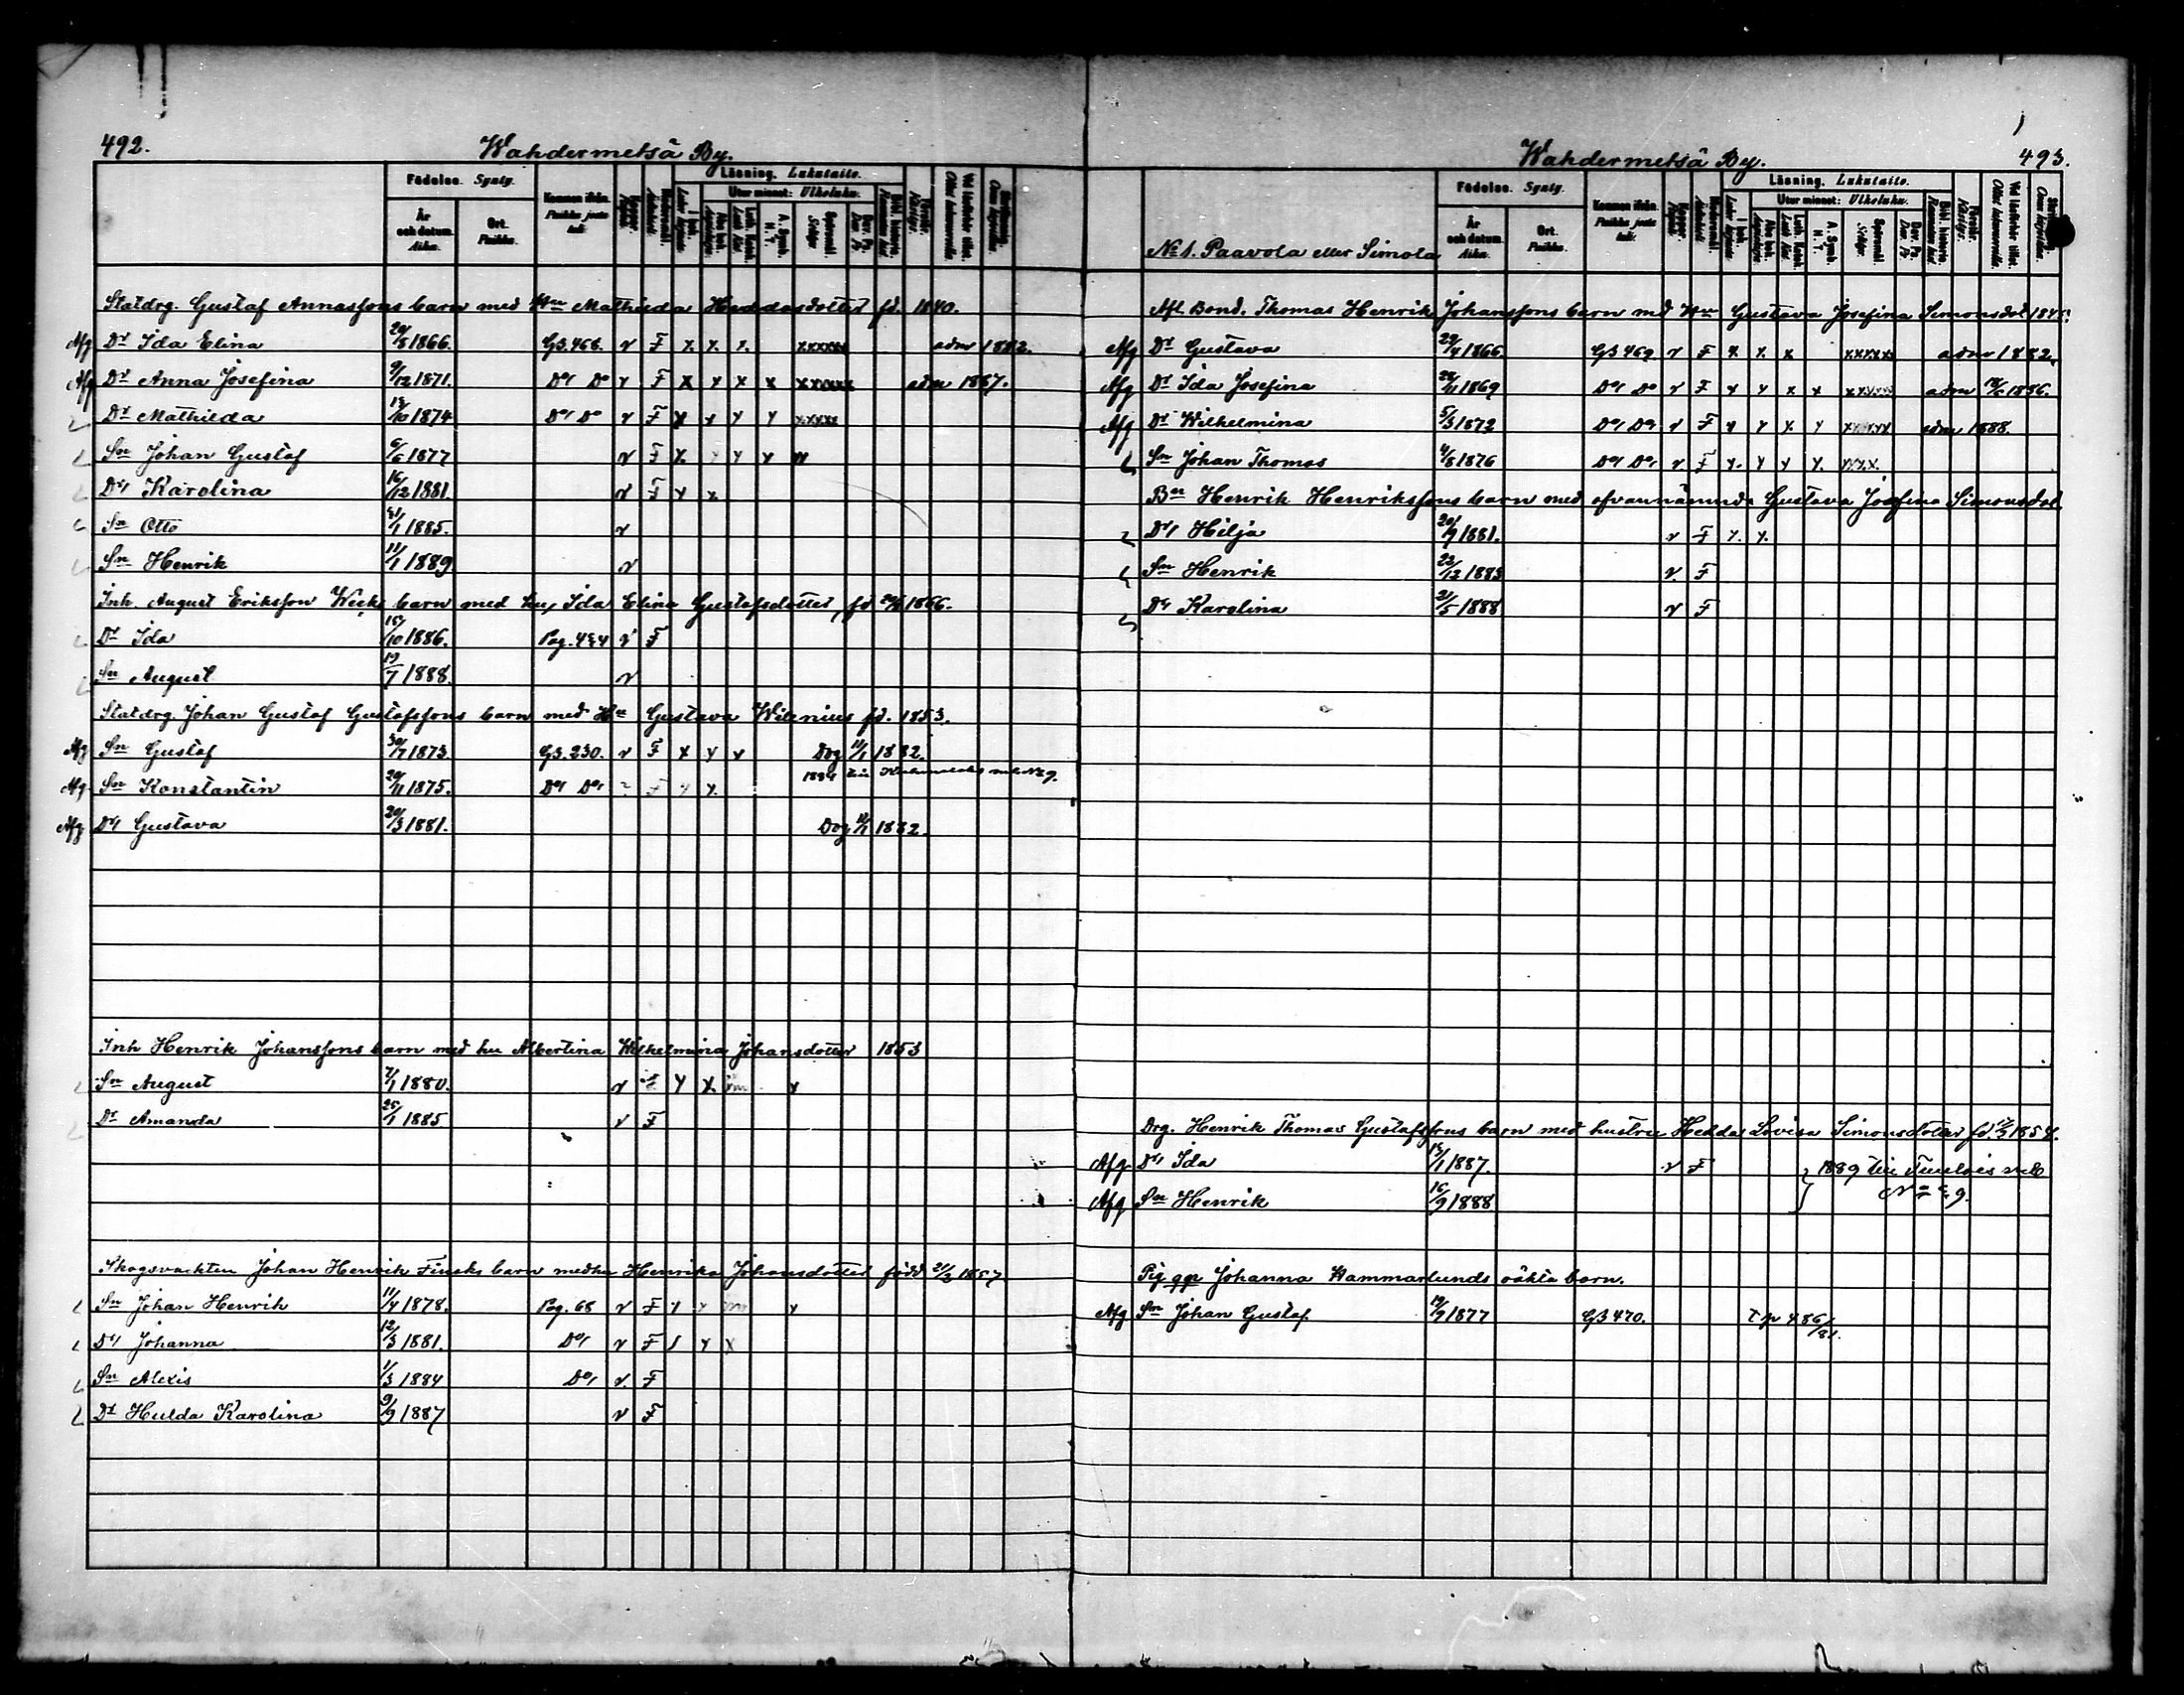 492.
Wahdermetsä By.
Födelse. Synty.
År och datum. Aika.
Ort. Paikka.
Kommen ifrån.
Läsning. Lukutaito.
Utur minnet: Ulkoluku.
Statdrg. Gustaf Annasfons barn med Hu Mathilda Heddasdotter fd. 1840.
Afg Dr Ida Elina 20/8 1866. GB. 468. v F x. x. x. xxxxx adm 1882.
Afg Dr Anna Josefina 9/12 1871. Do Do v F x x x x xxxxxx adm 1887.
Dr Mathilda 13/10 1874 Do Do v F x x x x xxxxx
Sn Johan Gustaf 6/6 1877 v F x. x x x
Dr Karolina 16/12 1881. v F x x.
Sn Otto 31/1 1885. v
Sn Henrik 11/1 1889 v
Inh. August Eriksson barn med hu, Ida Elina Gustafsdotter, fd 20/8 1866.
Dr Ida 15/10 1886. Pag. 484 v F
Sn August 19/7 1888. v
Statdrg. Johan Gustaf Gustafsfons barn med Hu Gustava Wilenius fd. 1853.
Afg Sn Gustaf 30/7 1873. GB. 230. v F x x x Dog 11/1 1882.
Afg Sn Konstantin 20/11 1875. Do Do F x x.
Afg Dr Gustava 20/3 1881. Dog 11/1 1882.
Inh Henrik Johansfons barn med hu Albertina Wilhelmina Johansdotter 1853
Sn August 7/1 1880. v F x x. x
Dr Amanda 25/1 1885 v F
Skogsvakten Johan Henrik Finsks barn med hu Henrika Johansdotter född 21/2 1857
Sn Johan Henrik 11/4 1878. Pag. 68 v F x x x
Dr Johanna 12/3 1881. Do v F / x x
Sn Alexis 1/3 1884 Do v. F
Dr Hulda Karolina 9/9 1887 v F
Wahdermetsä By. 493.
No 1. Paavola eller Simola
Födelse. Synty.
År och datum. Aika.
Ort. Paikka.
Kommen ifrån.
Läsning. Lukutaito.
Utur minnet: Ulkoluku.
Afl. Bond. Thomas Henrik Johansfons barn md Hu Gustava Josefina Simonsdot
Afg Dr Gustava 29/4 1866. GB 469 v F x x x xxxxx adm 1882.
Afg Dr Ida Josefina 28/11 1869 Do Do v F x x x x xxxxx adm 1886.
Afg Dr Wilhelmina 5/3 1872 Do Do v F x x x x xxxxx adm 1888.
Sn Johan Thomas 4/8 1876 Do Do v F x. x x x. xxxx.
Bn Henrik Henriksfons barn med ofvannämnda Gustava Josefina Simonsdot.
Dr Hilja 20/9 1881. v F x. x.
Sn Henrik 23/12 1883 v F
Dr Karolina 21/5 1888 v F
Drg. Henrik Thomas Gustafsfons barn med hustru Hedda Lovisa Simonsdotter
Afg Dr Ida 13/1 1887. v F } 1889
Afg Sn Henrik 16/9 1888
Pig. Johanna Hammarlunds oäkta barn.
Afg Sn Johan Gustaf. 19/9 1877 GB 470. T p 486/81.